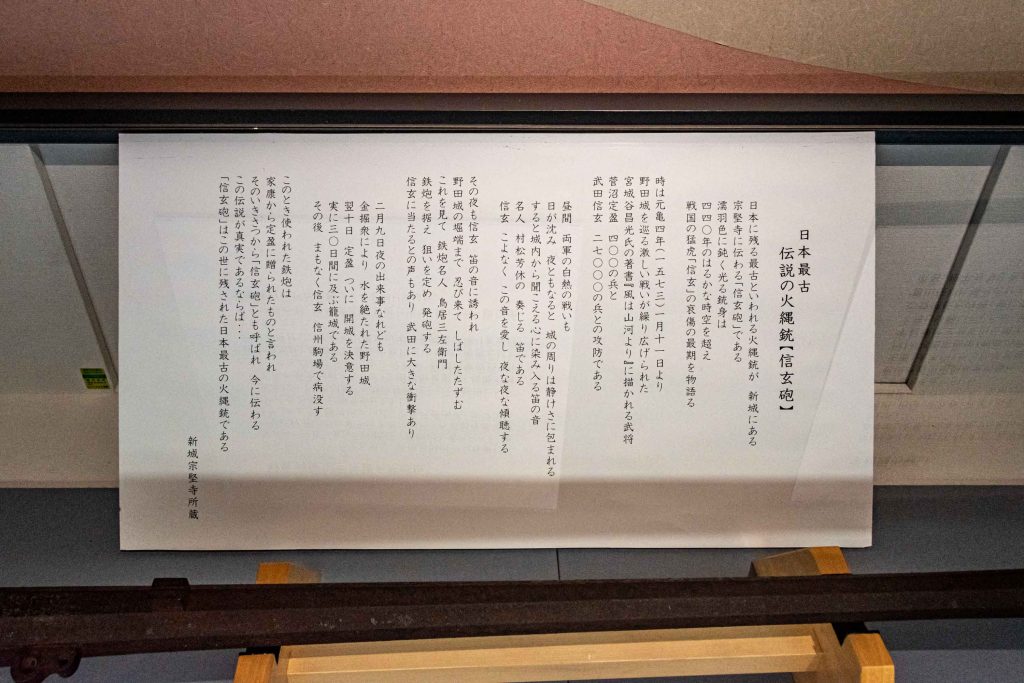 日本最古
伝説の火縄銃【信玄砲】
日本に残る最古といわれる火縄銃が　新城にある
宗堅寺に伝わる「信玄砲」である
濡羽色に鈍く光る銃身は
四四〇年のはるかな時空を超え
戦国の猛虎「信玄」の哀傷の最期を物語る
時は元亀四年（一五七三）一月十一日より
野田城を巡る激しい戦いが繰り広げられた
宮城谷昌光氏の著書『風は山河より』に描かれる武将
菅沼定盈　四〇〇の兵と
武田信玄　二七〇〇〇の兵との攻防である
昼間　両軍の白熱の戦いも
日が沈み　夜ともなると　城の周りは静けさに包まれる
すると城内から聞こえる心に染み入る笛の音
名人　村松芳休の　奏じる　笛である
信玄　こよなく　この音を愛し　夜な夜な傾聴する
その夜も信玄　笛の音に誘われ
野田城の堀端まで　忍び来て　しばしたたずむ
これを見て　鉄炮名人　鳥居三左衛門
鉄炮を据え　狙いを定め　発砲する
信玄に当たるとの声もあり　武田に大きな衝撃あり
二月九日夜の出来事なれども
金掘衆により　水を絶たれた野田城
翌十日　定盈　ついに　開城を決意する
実に三〇日間に及ぶ籠城である
その後　まもなく信玄　信州駒場で病没す
このとき使われた鉄炮は
家康から定盈に贈られたものと言われ
そのいきさつから「信玄砲」とも呼ばれ　今に伝わる
この伝説が真実であるならば・・・
「信玄砲」はこの世に残された日本最古の火縄銃である
新城宗堅寺所蔵